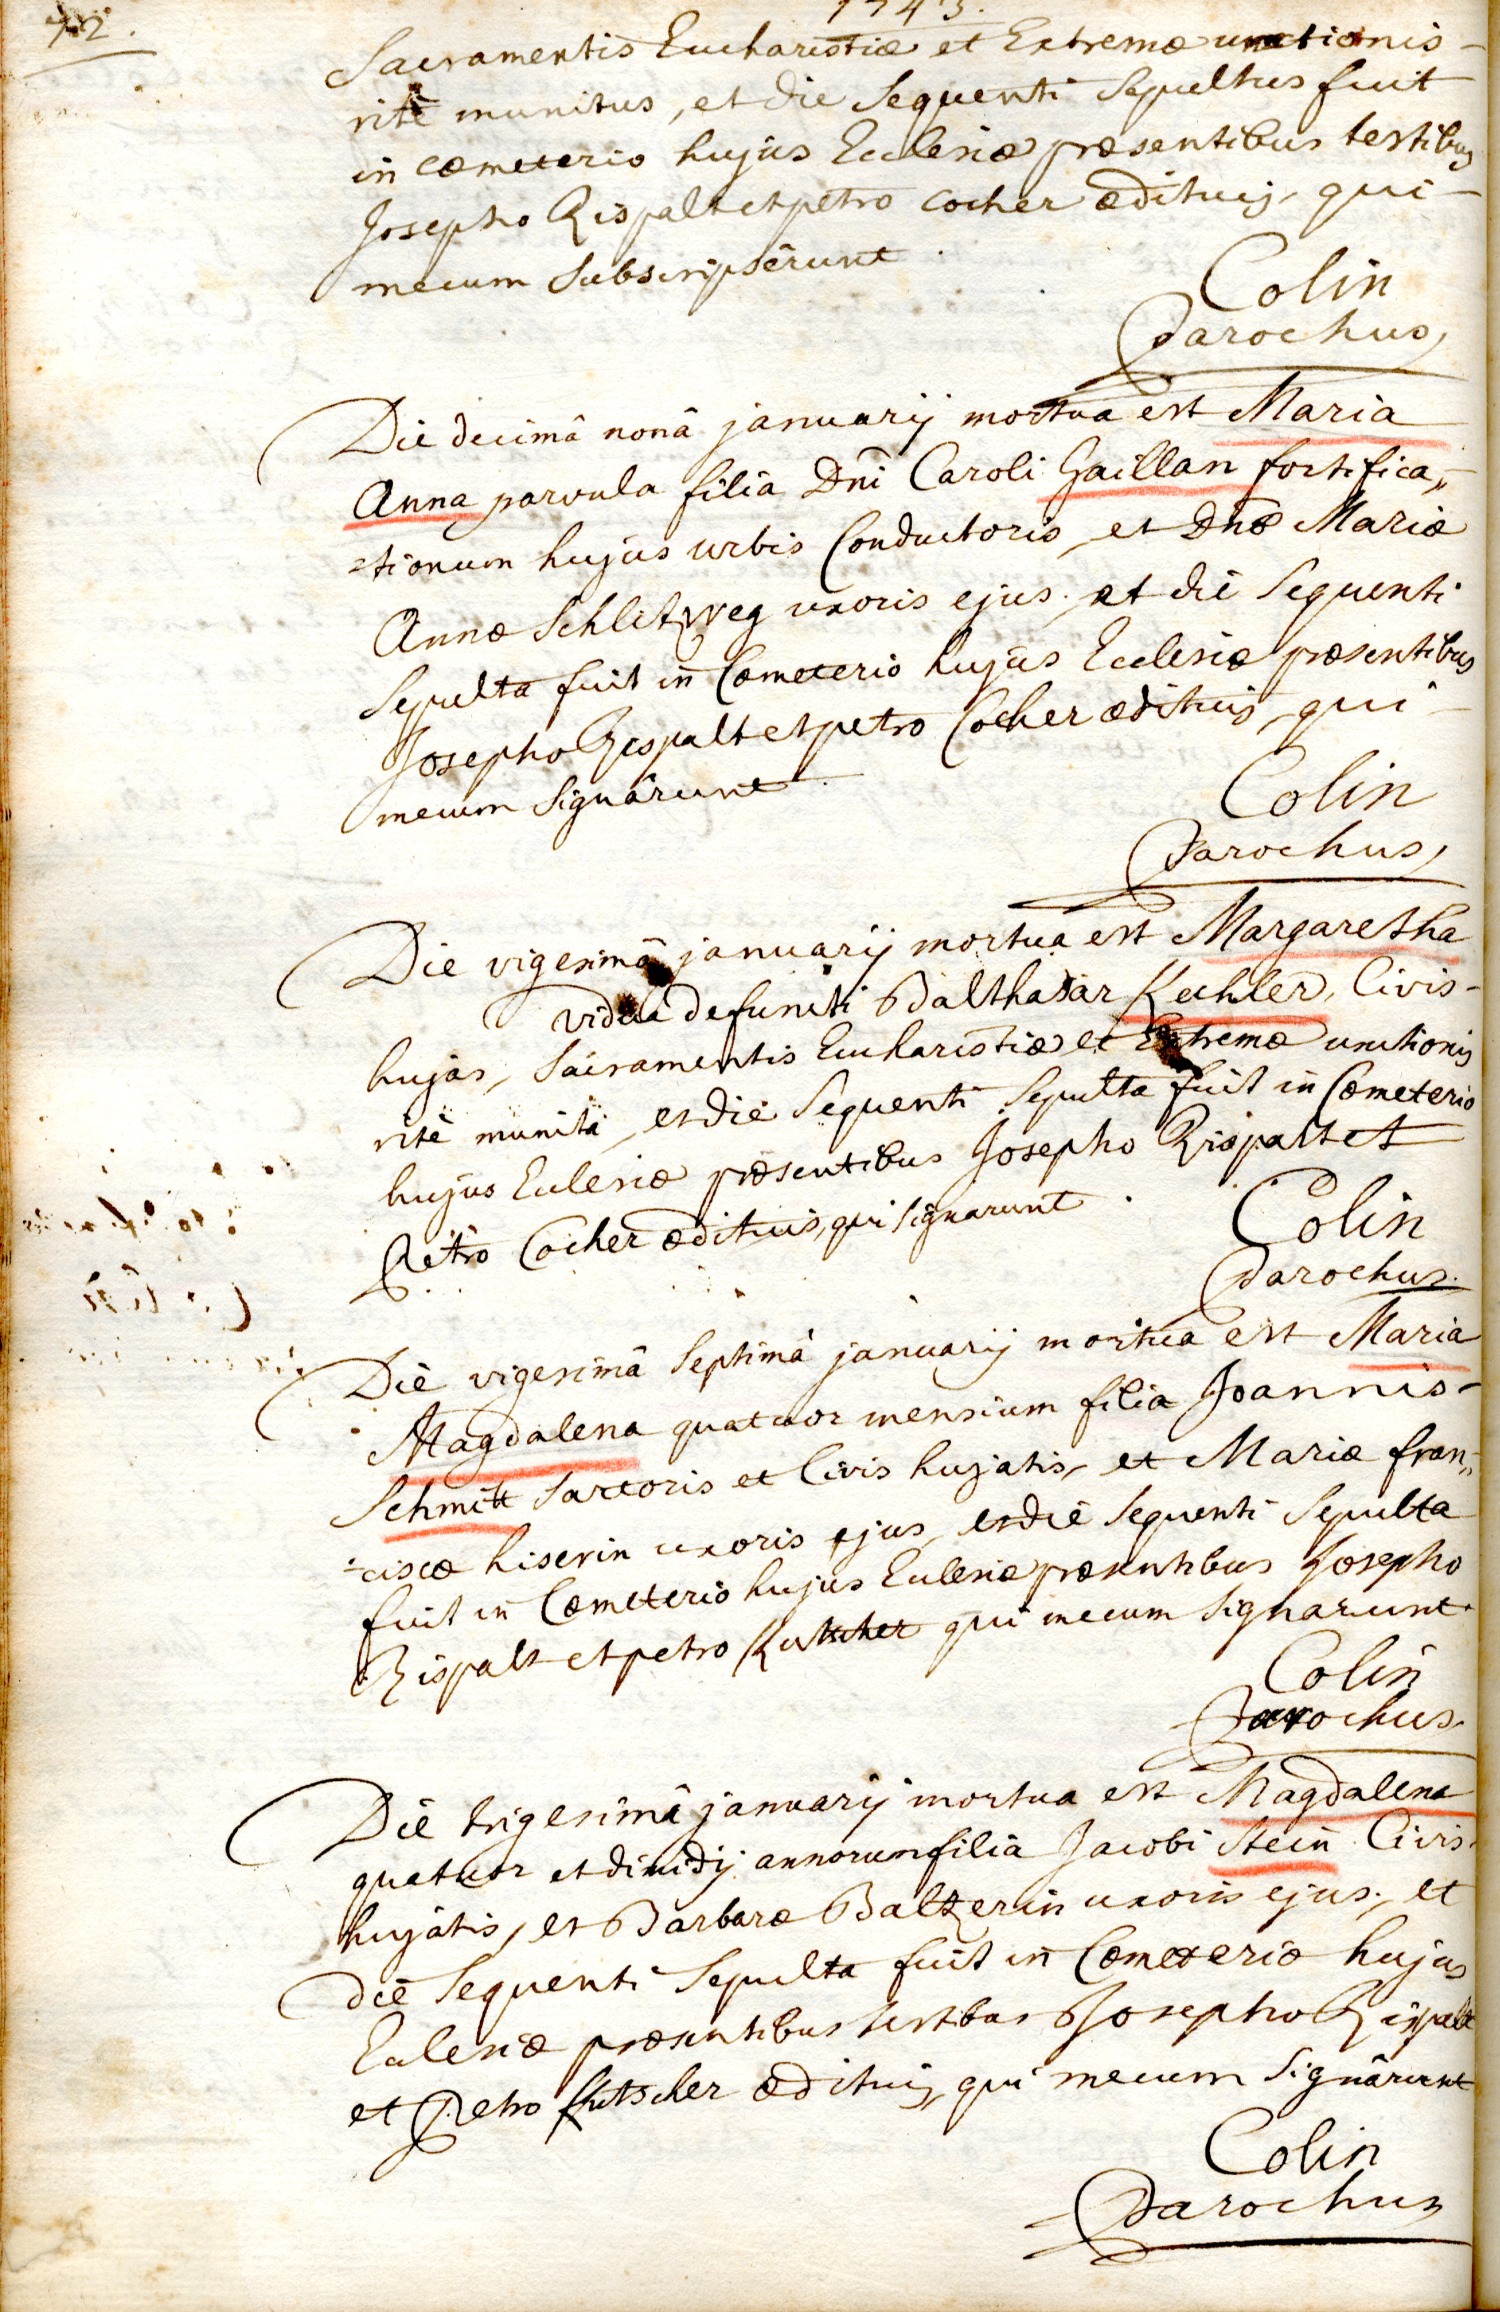 72.
1743.
Sacramentis Eucharistiæ et Extremæ unctionis
ritè munitus, et die sequenti sepultus fuit
in cœmeterio hujus Ecclesiæ præsentibus testibus
Josepho Rispalt et petro cocher ædituis, qui
mecum subscripsêrunt.
Colin
Parochus
Die decimâ nonâ januarij mortua est Maria
Anna parvula filia Dni Caroli Gaillan fortifica„
=tionum hujus urbis Conductoris, et Dnæ Mariæ
Annæ Schlitweg uxoris ejus. et die sequenti
sepulta fuit in Cœmeterio hujus Ecclesiæ præsentibus
Josepho Rispalt et petro Cocher ædituis, qui
mecum signârunt.
Colin
Parochus
Die vigesimâ januarij mortua est Margaretha
vidua defuncti Balthasar Kechler, Civis
hujas, Sacramentis Eucharistiæ et Extremæ unctionis
ritè munita, et die sequenti sepulta fuit in Cœmeterio
hujus Ecclesiæ præsentibus Josepho Rispalt et
Petro Cocher ædituis, qui signarunt.
Colin
Parochus.
Die vigesimâ septimâ januarij mortua est Maria
Magdalena quatuor mensium filia Joannis
Schmitt sartoris et Civis hujatis, et Mariæ fran„
=ciscæ hiserin uxoris ejus, et die sequenti sepulta
fuit in Cœmeterio hujus Ecclesiæ præsentibus Josepho
Rispalt et petro Kutscher qui mecum signarunt.
Colin
Parochus.
Die trigesimâ januarij mortua est Magdalena
quatuor et dimidij annorum filia Jacobi Stein Civis
hujâtis, et Barbaræ Baltzerin uxoris ejus, et
die sequenti sepulta fuit in Cœmeterio hujus
Ecclesiæ præsentibus testibus Josepho Rispalt
et Petro Kutscher ædituis, qui mecum signârunt
Colin
Parochus